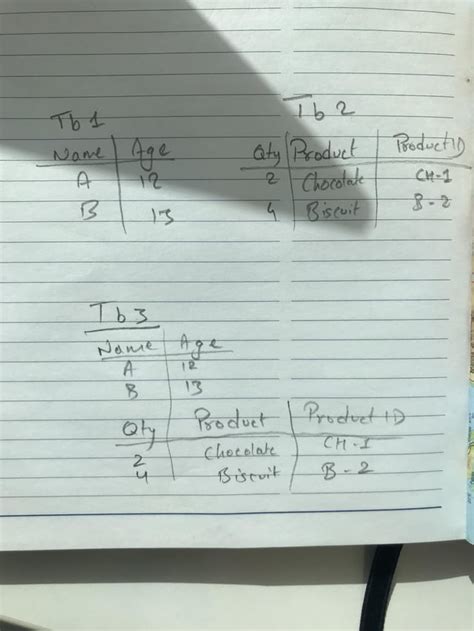 Tb 1
Tb 2
Name Age
Qty Product ProductID
A 12
2 Chocolate CH-1
B 13
4 Biscuit B-2
Tb3
Name Age
A 12
B 13
Qty Product Product ID
2 Chocolate CH-1
4 Biscuit B-2